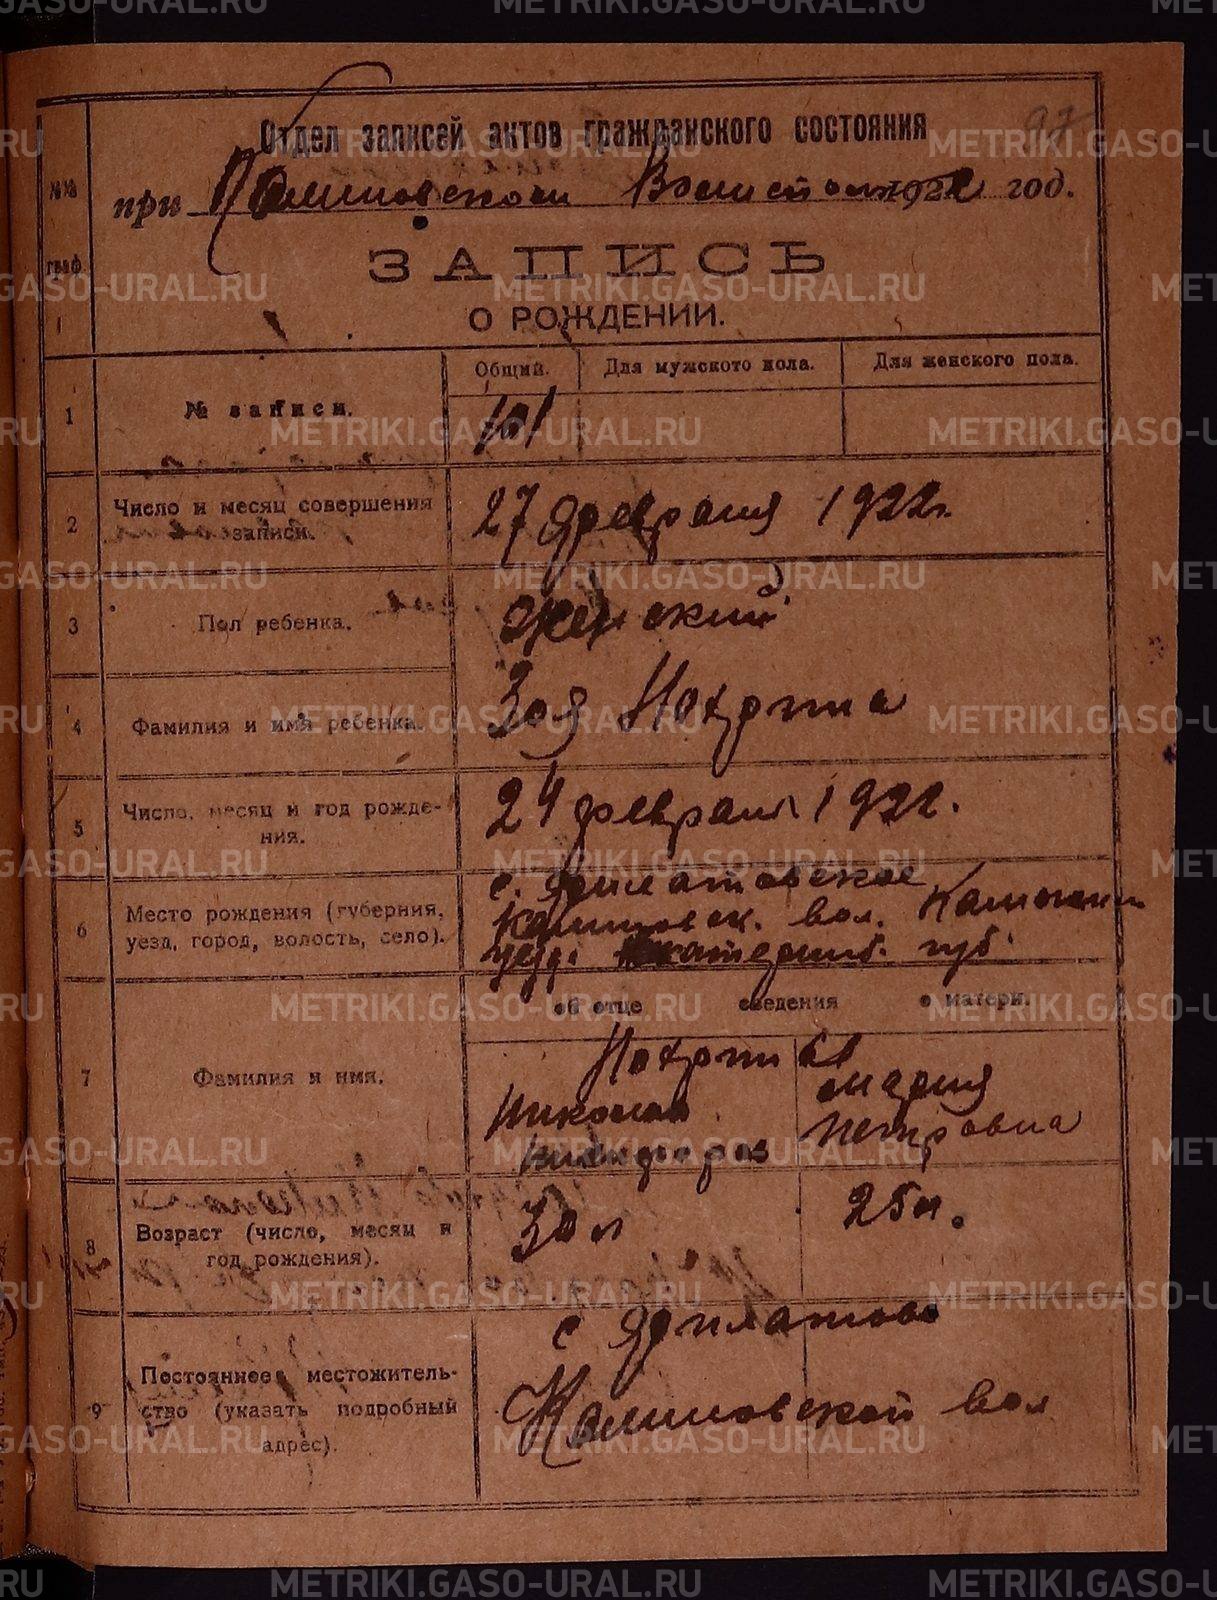 97
Отдел записей актов гражданского состояния
№№ граф.
при Калиновском 1922 год.
ЗАПИСЬ
О РОЖДЕНИИ.
Общий. Для мужского пола. Для женского пола.
1 № записи. 101
2 Число и месяц совершения записи. 27 февраля 1922 г.
3 Пол ребенка. Женский
4 Фамилия и имя ребенка. Зоя
5 Число, месяц и год рождения. 24 февраля 1922.
6 Место рождения (губерния, уезд, город, волость, село).
с. Филатовское
Калиновск. вол.
уезд. Екатеринб. губ.
об отце сведения о матери.
7 Фамилия и имя.
Николай Мария
Петровна
8 Возраст (число, месяц и год рождения). 30 л 25 л.
9 Постоянное местожительство (указать подробный адрес).
с Филатово
Калиновской вол
METRIKI.GASO-URAL.RU